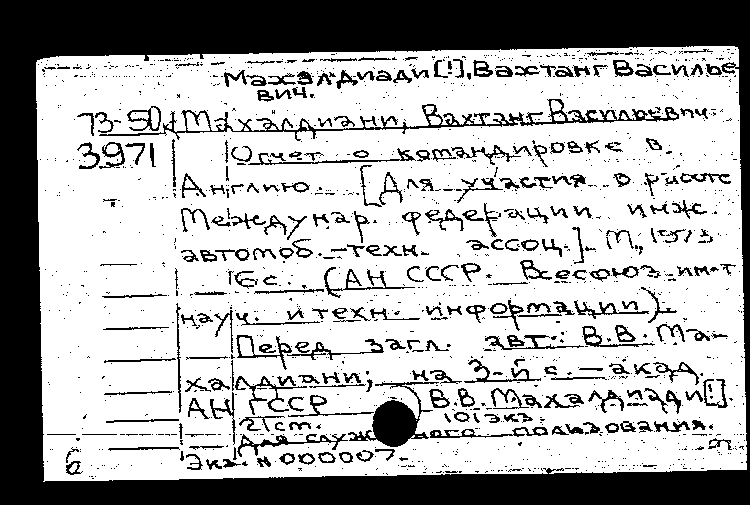 Махалдиади [!], Вахтанг Василье-
вич.
73-50к Махалдиани, Вахтанг Васильевич.
3971 Отчет о командировке в
Англию. [Для участия в работе
Междунар. федерации инж.
автомоб.-техн. ассоц.]. М., 1973
16 с. (АН СССР. Всесоюз. ин-т
науч. и техн. информации).
Перед загл. авт.: В.В. Ма-
халдиани; на 3-й с. — акад.
АН ГССР В.В. Махалдиади [!].
21 см. 101 экз.
Для служебного пользования.
Экз. N 000007.
б